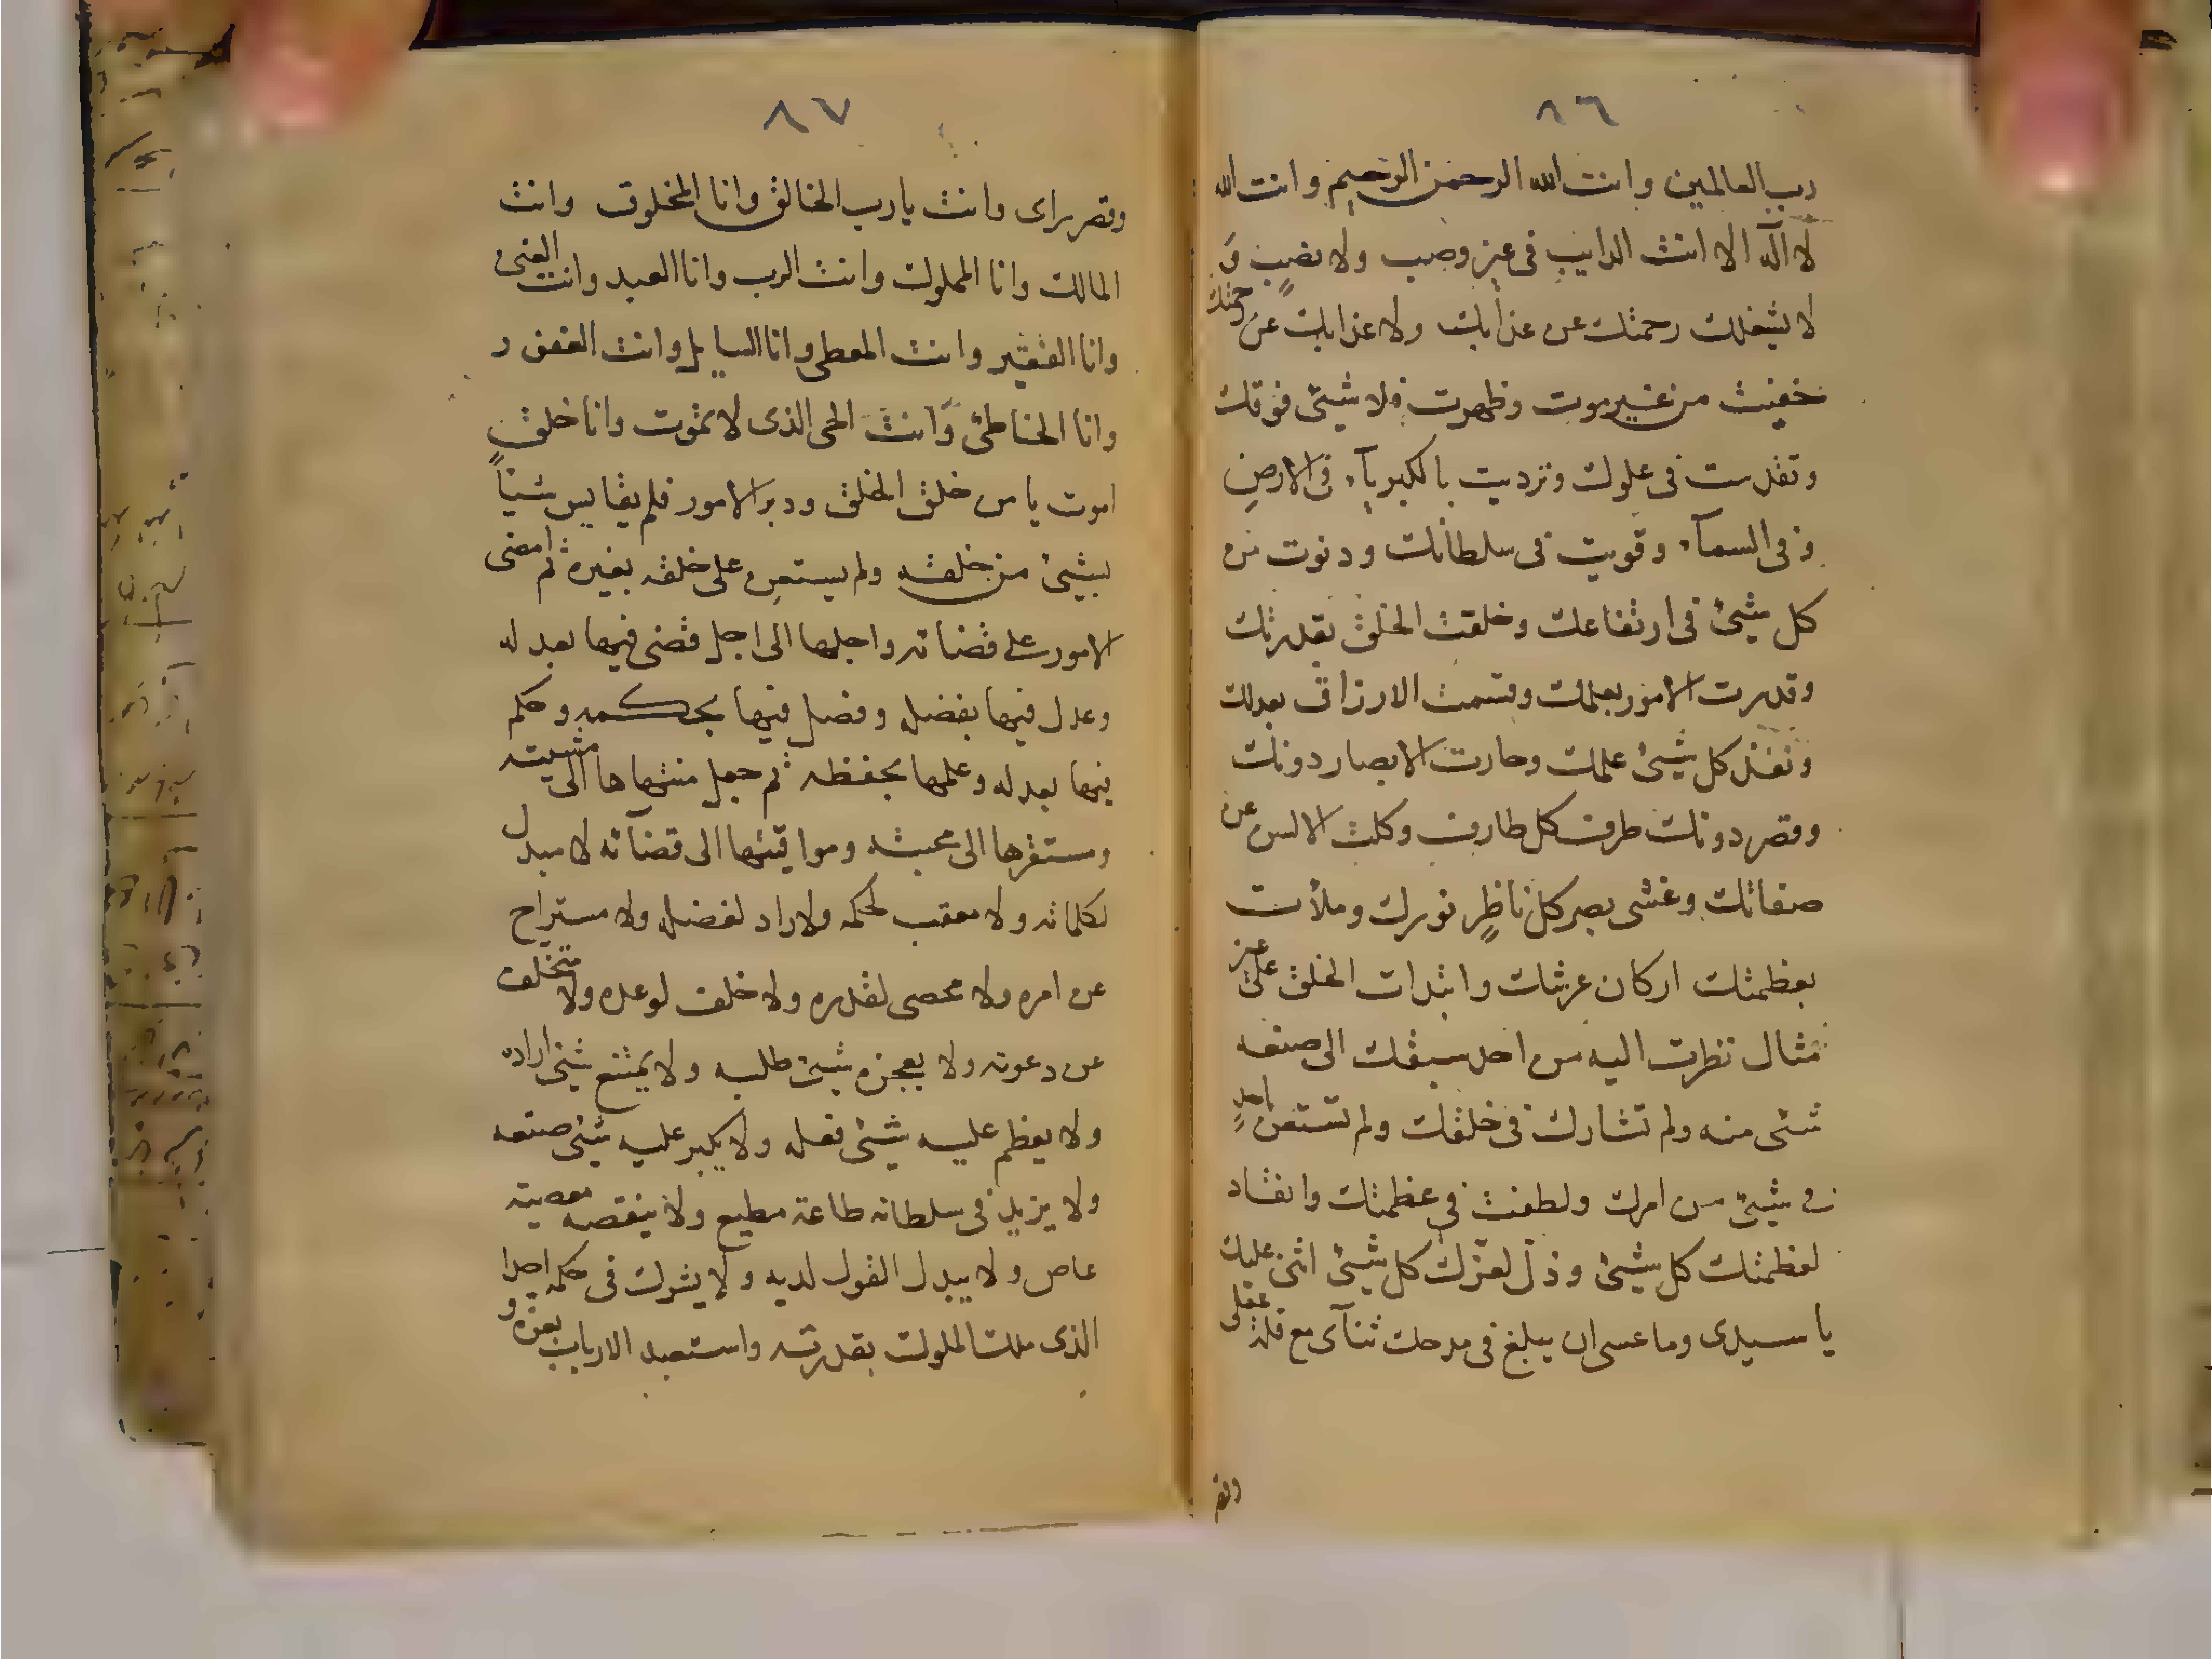 ٨٦
رب العالمين وانت الله الرحمن الرحيم وانت الله
لا اله الا انت الدايب في غير وصب ولا نصب و
لا يشغلك رحمتك عن عذابك ولا عذابك عن رحمتك
خفيت من غير موت وظهرت فلا شيئ فوقك
وتقدست في علوك وترديت بالكبرياء في الارض
وفي السماء وقويت في سلطانك ودنوت من
كل شيئ في ارتفاعك وخلقت الخلق بقدرتك
وقدرت الامور بعلمك وقسمت الارزاق بعدلك
ونفذ كل شيئ علمك وحارت الابصار دونك
وقصر دونك طرف كل طارف وكلت الالسن عن
صفاتك وغشى بصر كل ناظر نورك وملأت
بعظمتك اركان عرشك وابتدات الخلق على غير
مثال نظرت اليه من احد سبقك الى صنعه
شئى منه ولم تشارك في خلقك ولم تستعن باحد
في شيئ من امرك ولطفت في عظمتك وانقاد
لعظمتك كل شيئ وذل لعزك كل شيئ اثنى عليك
يا سيدى وما عسى ان يبلغ في مدحك ثنآى مع قلة عملى
وقصر
٨٧
وقصر براى وانت يا رب الخالق وانا المخلوق وانت
المالك وانا المملوك وانت الرب وانا العبد وانت الغنى
وانا الفقير وانت المعطى وانا السايل وانت الغفور
وانا الخاطئ وانت الحى الذى لا يموت وانا خلق
اموت يا من خلق الخلق ودبر الامور فلم يقايس شيئاً
بشيئ من خلقه ولم يستعن على خلقه بغيره ثم امضى
الامور على قضائه واجلها الى اجل قضى فيها بعدله
وعدل فيها بفضل وفصل فيها بحكمه وحكم
فيها بعدله وعلمها بحفظه ثم جعل منتهاها الى مشيته
ومستقرها الى محبته ومواقيتها الى قضآئه لا مبدل
لكلماته ولا معقب لحكمه ولا راد لفضله ولا مستراح
عن امره ولا محصى لقدره ولا خلف لوعده ولا متخلف
عن دعوته ولا يعجزه شيئ طلبه ولا يمتنع شيئ اراده
ولا يعظم عليه شيئ فعله ولا يكبر عليه شيئ صنعه
ولا يزيد في سلطانه طاعة مطيع ولا ينقصه معصيته
عاص ولا يبدل القول لديه ولا يشرك في حكمه احدا
الذى ملك الملوك بقدرته واستعبد الارباب بعزه و